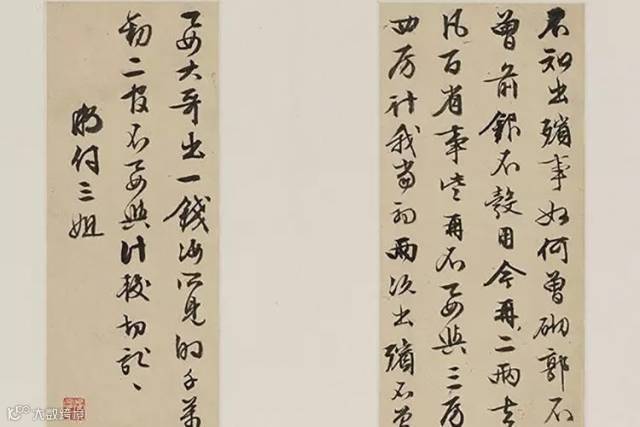 不知出殯事如何曾砌郭不
曾前銀不彀用今再二兩去
凡百省事些再不要與三房
四房計我當初兩次出殯不曾
要大哥出一錢汝所見的千萬
勸二官不要與計較切記、
明付三姐
大数跨境